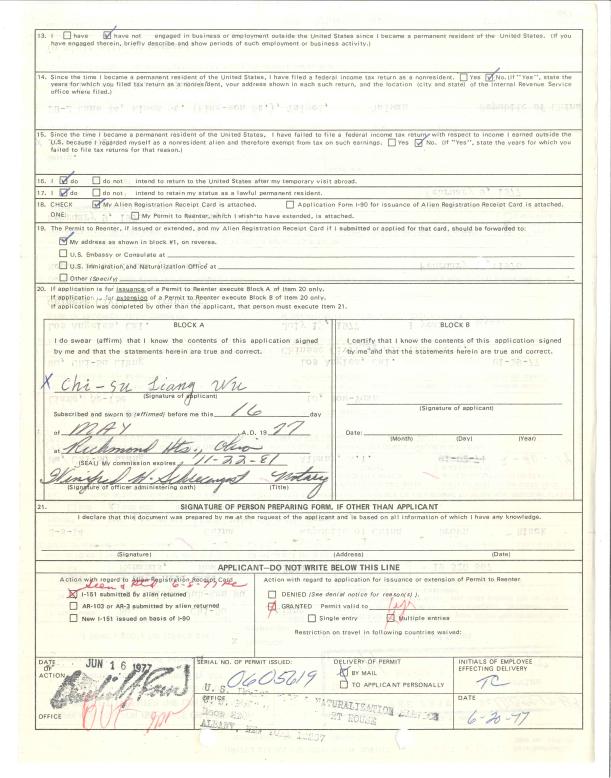 13. I have have not engaged in business or employment outside the United States since I became a permanent resident of the United States. (If you
have engaged therein, briefly describe and show periods of such employment or business activity.)
14. Since the time I became a permanent resident of the United States, I have filed a federal income tax return as a nonresident. Yes No. (If "Yes", state the
years for which you filed tax return as a nonresident, your address shown in each such return, and the location (city and state) of the Internal Revenue Service
office where filed.)
15. Since the time I became a permanent resident of the United States, I have failed to file a federal income tax return with respect to income I earned outside the
U.S. because I regarded myself as a nonresident alien and therefore exempt from tax on such earnings. Yes No. (If "Yes", state the years for which you
failed to file tax returns for that reason.)
16. I do do not intend to return to the United States after my temporary visit abroad.
17. I do do not intend to retain my status as a lawful permanent resident.
18. CHECK My Alien Registration Receipt Card is attached. Application Form I-90 for issuance of Alien Registration Receipt Card is attached.
ONE: My Permit to Reenter, which I wish to have extended, is attached.
19. The Permit to Reenter, if issued or extended, and my Alien Registration Receipt Card if I submitted or applied for that card, should be forwarded to:
My address as shown in block #1, on reverse.
U.S. Embassy or Consulate at
U.S. Immigration and Naturalization Office at
Other (Specify)
20. If application is for issuance of a Permit to Reenter execute Block A of Item 20 only.
If application is for extension of a Permit to Reenter execute Block B of Item 20 only.
If application was completed by other than the applicant, that person must execute Item 21.
BLOCK A
I do swear (affirm) that I know the contents of this application signed
by me and that the statements herein are true and correct.
X Chi-su Liang Wu
(Signature of applicant)
Subscribed and sworn to (affirmed) before me this 16 day
of MAY , A.D. 19 77
at Richmond Hts., Ohio
(SEAL) My commission expires 11-22-81
Winifred Notary
(Signature of officer administering oath) (Title)
BLOCK B
I certify that I know the contents of this application signed
by me and that the statements herein are true and correct.
(Signature of applicant)
Date:
(Month) (Day) (Year)
21. SIGNATURE OF PERSON PREPARING FORM, IF OTHER THAN APPLICANT
I declare that this document was prepared by me at the request of the applicant and is based on all information of which I have any knowledge.
(Signature) (Address) (Date)
APPLICANT—DO NOT WRITE BELOW THIS LINE
Action with regard to Alien Registration Receipt Card
I-151 submitted by alien returned
AR-103 or AR-3 submitted by alien returned
New I-151 issued on basis of I-90
Action with regard to application for issuance or extension of Permit to Reenter
DENIED (See denial notice for reason(s).)
GRANTED Permit valid to 1 yr
Single entry Multiple entries
Restriction on travel in following countries waived:
DATE OF ACTION JUN 16 1977
OFFICE
SERIAL NO. OF PERMIT ISSUED:
0605619
OFFICE
NATURALIZATION SERVICE
ALBANY, NEW YORK 12207
DELIVERY OF PERMIT
BY MAIL
TO APPLICANT PERSONALLY
INITIALS OF EMPLOYEE
EFFECTING DELIVERY
TC
DATE
6-20-77